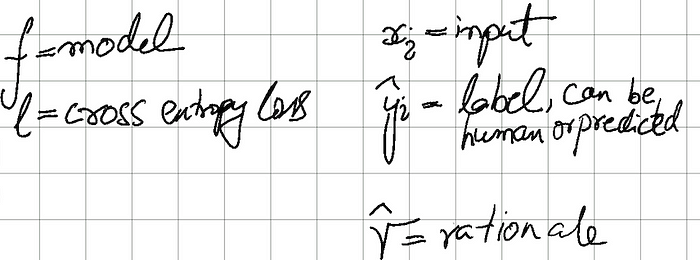 f = model
l = cross entropy loss
x_i = input
ŷ_i = label, can be
human or predicted
r̂ = rationale